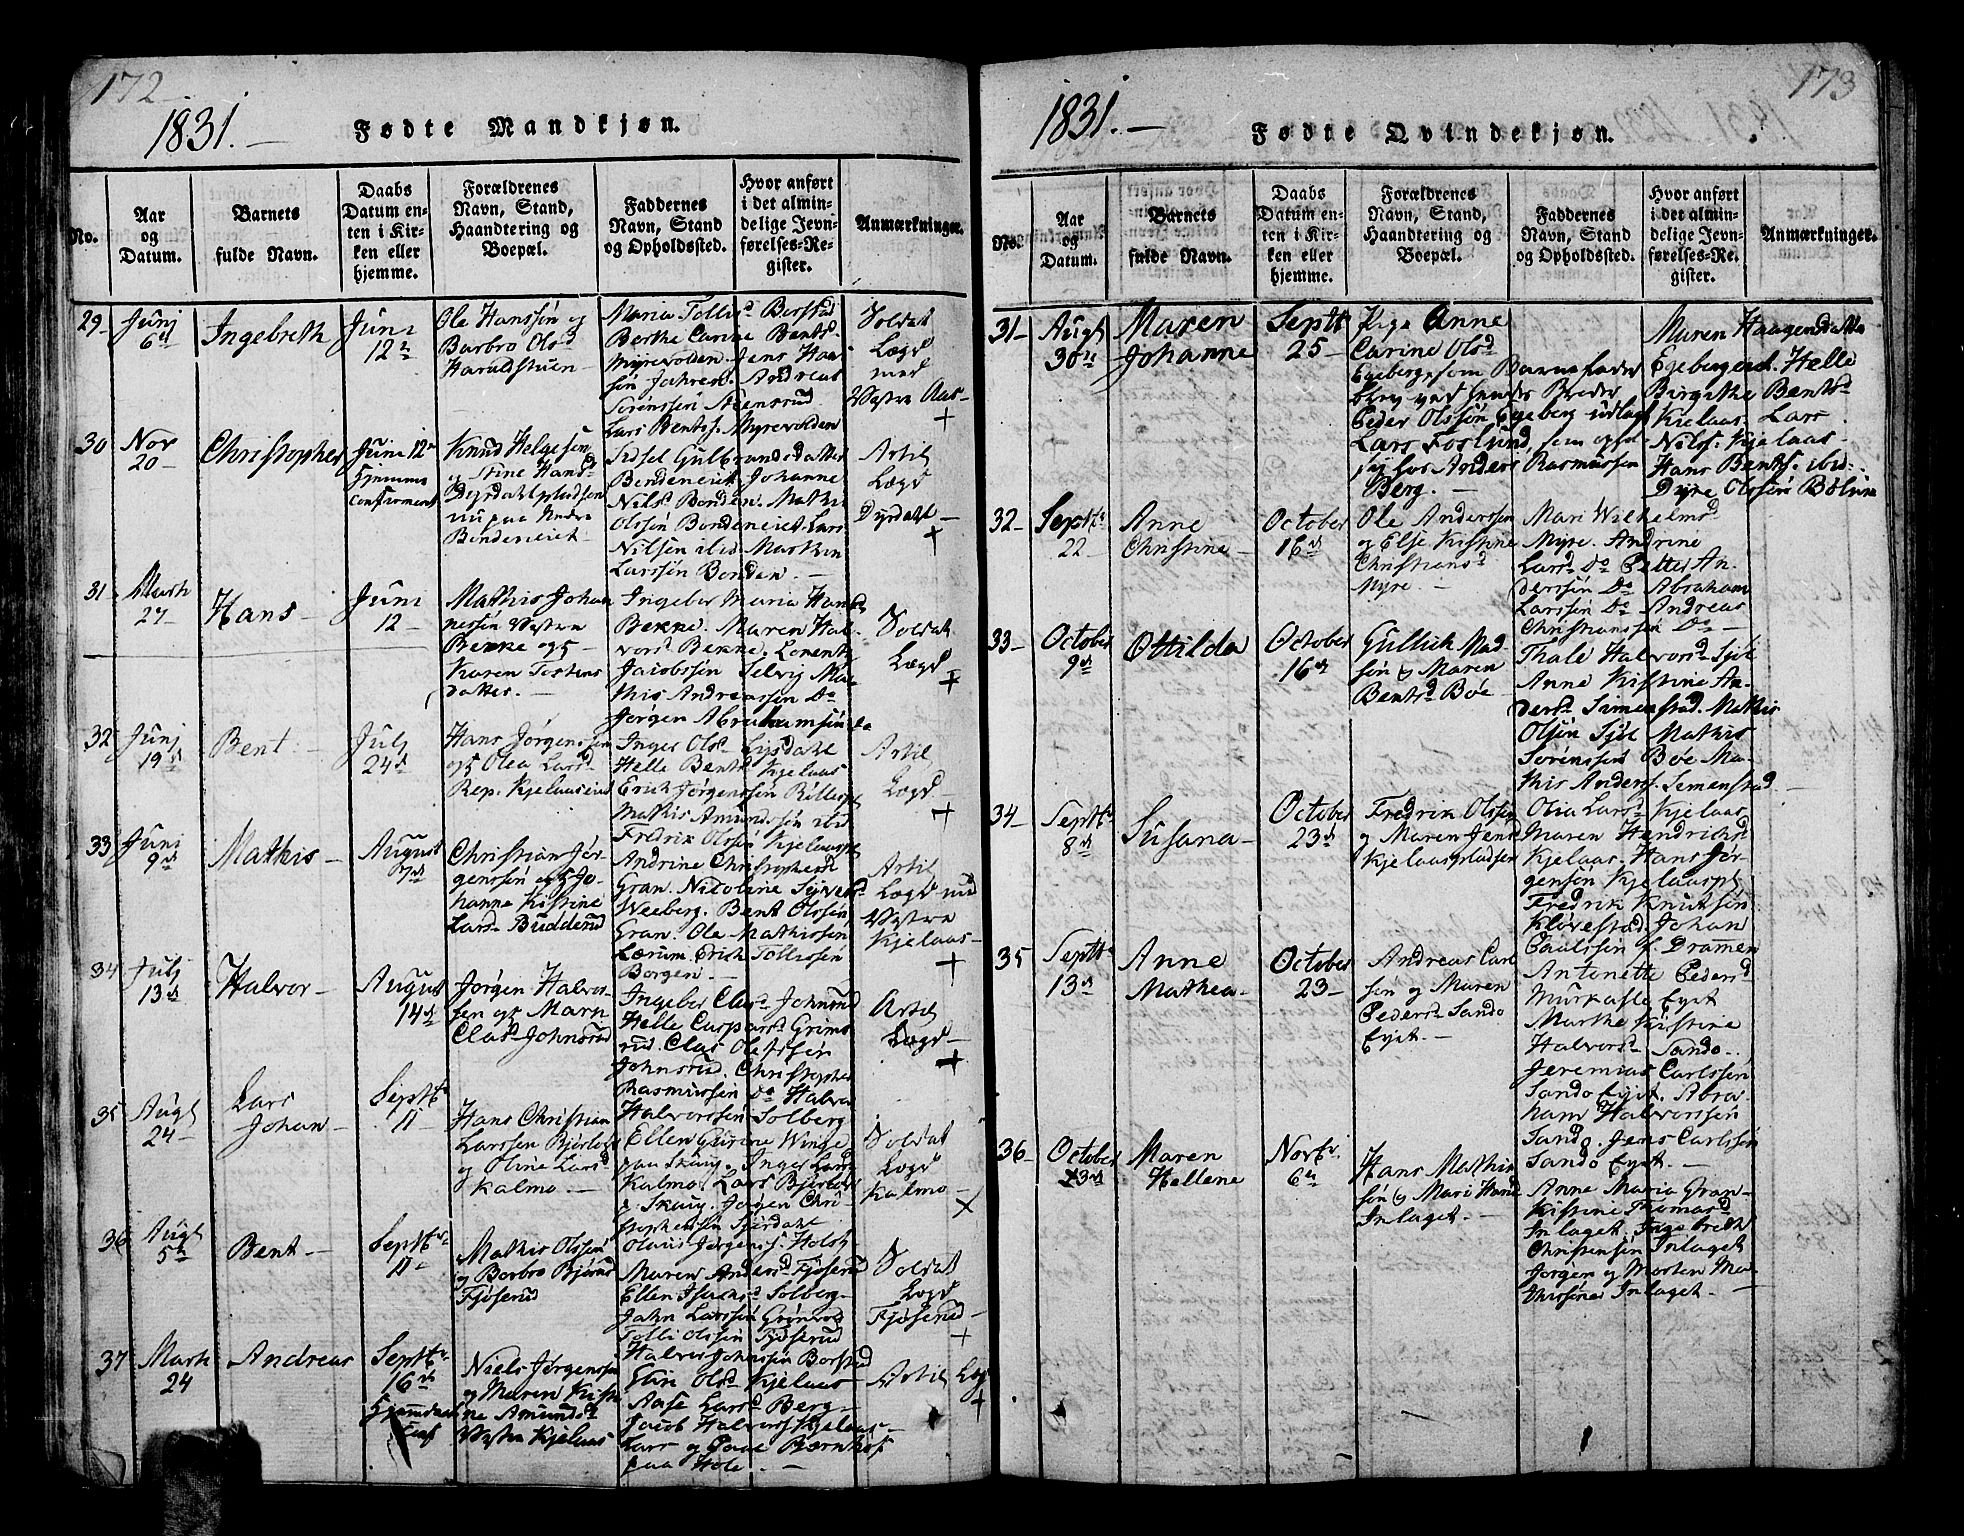 172
1831.
Fødte Mandkjøn.
No.
Aar
og
Datum.
Barnets
fulde Navn.
Daabs
Datum en-
ten i Kir-
ken eller
hjemme.
Forældrenes
Navn, Stand,
Haandtering og
Boepæl.
Faddernes
Navn, Stand
og Opholdssted.
Hvor anført
i det almin-
delige Jevn-
førelses-Re-
gister.
Anmærkninger.
29
Junj
6te
Ingebreth
Juni
12te
Ole Hanssøn og
Barbro Olsd
Haraldstuen
Maria Tollisd Borstad
Berthe Carine Bentsd
Myrevolden. Jens Han
søn Jahren. Andreas
Sørenssen Steensrud
Lars Bentss. Myrevolden
Soldat
Lægd
med
Vestre Aas
30
Nov
20
Christopher
Juni 12te
Hjemme
Confirmeret
Knud Helgesen
og Stine Hansd
Dyrdahlpladsen
nu paa Nedre
Bondeneiet
Sidsel Gulbrandsdatter
Bondeneiet Johanne
Nilsd Bonden. Mathis
Olssøn Bondeneiet Lars
Nilsen ibid Mathis
Larssøn Bonden.
Artil
Lægd
Dyrdahl
31
Marth
27
Hans
Juni
12
Mathis Johan
nessøn Vestre
Bekke og
Karen Tostens
datter.
Ingebor Maria Hansd
Bekke. Maren Hal-
vorsd Bekke. Lorents
Jacobssøn Selvig Ma-
this Andreassen Do
Jørgen Abrahamsøn do
Soldat
Lægd
32
Junj
19de
Bent
Julj
24de
Hans Jørgenssen
og Olea Larsd
Rep. Kjelaaseiet
Inger Olsd Lysdahl
Helle Bentsd Kjelaas
Erich Jørgenssøn Rillerpl
Mathis Amundssøn ibid
Fredrik Olssøn Kjelaaspl
Artil
Lægd
33
Juni
9de
Mathis
August
7de
Christian Jør-
genssøn og Jo-
hanne Kistine
Larsd Budderud
Andrine Christophersd
Gran. Nicoline Syversd
Weeberg. Bent Olssøn
Gran. Ole Mathissen
Lærum. Erich Tollissøn
Borgen
Artil
Lægd med
Vestre
Kjelaas
34
Julj
13de
Halvor
August
14de
Jørgen Halvor-
sen og Maren
Clasd Johnsrud
Ingebor Clasd Johnsrud
Helle Caspersd Grims
rud. Clas Olessøn
Johnsrud. Christopher
Rasmussøn do Halvor
Halvorssøn Solberg
Artil
Lægd
35
Augt
24
Lars
Johan
Septbr
11
Hans Christian
Larssen Bjerløs
og Oline Larsd
Kalmo.
Ellen Gurine Winge
paa Skaug. Inger Larsd
Kalmo, Lars Bjerløs
p. Skaug. Jørgen Chri-
stophersøn Tjerdahl
Olaus Jørgenss. Holsh
Soldat
Lægd
Kalmo
36
Augt
5te
Bent
Septbr
11
Mathis Olssøn
og Barbro Bjørnsd
Fjøserud
Maren Andersd Fjøserud
Ellen Isachsd Solberg
John Larssøn Grønvold
Tolli Olssøn Fjøserud
Halvor Johnssøn Borstad
Soldat
Lægd
Fjøserud
37
Marth
24
Andreas
Septbr
16de
Hjemdøbt
Conf
Niels Jørgenssen
og Maren Kisti-
ne Amundsd
Vestre Kjelaas
Eline Olsd Kjelaas
Aase Larsd Berg
Jacob Halvors. Kjelaas
Lars og Paae Bærnholt
paa Hole.
Artil Læg
173
1831.
Fødte Qvindekjøn.
No.
Aar
og
Datum.
Barnets
fulde Navn.
Daabs
Datum en-
ten i Kir-
ken eller
hjemme.
Forældrenes
Navn, Stand,
Haandtering og
Boepæl.
Faddernes
Navn, Stand
og Opholdssted.
Hvor anført
i det almin-
delige Jevn-
førelses-Re-
gister.
Anmærkninger.
31
Augt
30te
Maren
Johanne
Septbr
25
Pige Anne
Carine Olsd
Egeberg, som Barnefader
blev ved hendes Broder
Peder Olssøn Egeberg udlagt
Lars Foslund, som ophol
sig hos Anders Rasmussen
Berg.
Maren Haagensdatter
Egebergend. Helle
Birgithe Bentsd
Kjelaas. Lars
Nils. Kjelaas
Hans Bents. ibid.
Dyre Olssøn Bølum
32
Septbr
22
Anne
Christine
October
16de
Ole Anderssen
og Else Kistine
Christiansd
Myre
Mari Wilhelmsd
Myre. Andrine
Larsd Do Petter An-
derssøn Do Abraham
Larssøn Do Andreas
Christianssøn Do
33
October
9de
Ottilda
October
16de
Gullik Mad
søn og Maren
Bentsd Bøe
Thale Halvorsd Sjøl
Anne Kistine An-
dersd Simenstad. Mathis
Olsøn Sjøl Mathis
Sørenssen Bøe Ma-
this Anderss. Semenstad
34
Septbr
8de
Susana
October
23de
Fredrik Olssøn
og Maren Jensd
Kjelaaspladsen
Olia Larsd Kjelaas
Maren Hendrichsd
Kjelaas. Hans Jør-
gensøn Kjelaaspl
Fredrik Knutsøn
Kløvestad. Johan
Paulssøn af Drammen
35
Septbr
13de
Anne
Mathea
October
23
Andreas Carl
søn og Maren
Pedersd Sando
Eyet.
Antonette Pedersd
Murkasle Eyet
Marthe Kistine
Halvorsd Sando.
Jeremias Carlssøn
Sando Eyet. Abra
ham Halvorssøn
Sando. Jens Carlssøn
Sando Eyet.
36
October
23de
Maren
Hellene
Novbr
6te
Hans Mathis
søn og Mari Hansd
Inlaget.
Anne Maria Gran
Kistine Thomasd
Inlaget, Ingebreth
Christensøn Inlaget
Jørgen og Morten Ma-
thissøner Inlaget.